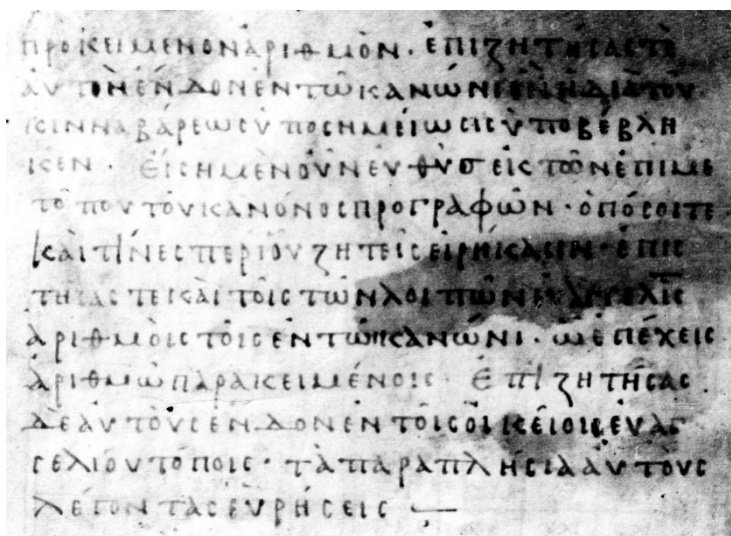 προκείμενον ἀριθμὸν · ἐπιζητήσας τὲ
αυτὸν ἔνδον ἐν τῶ κανώνι ἐν ῆ διὰ τοῦ
κινναβάρεως ὑποσημείωσις ὑποβέβλη
κεν · εἴση μὲν οὖν ευθὺσ εἰς τῶν ἐπι με
τόπου τοῦ κανόνος προγραφῶν · ὁπόσοι τε
καὶ τίνες περὶ οὗ ζητεῖς εἰρήκασιν · ἐπισ
τήσας τε καὶ τοῖς τῶν λοιπῶν
ἀριθμοῖς τοῖς ἐν τῶ κανώνι · ὡ ἐπέχεις
ἀριθμῶ παρακειμένοις · ἐπιζητήσας
δὲ αὐτοὺς ἔνδον ἐν τοῖς οἰκείοις εὐαγ
γελίου τόποις · τὰ παραπλήσια αὐτους
λέγοντας εὑρήσεις